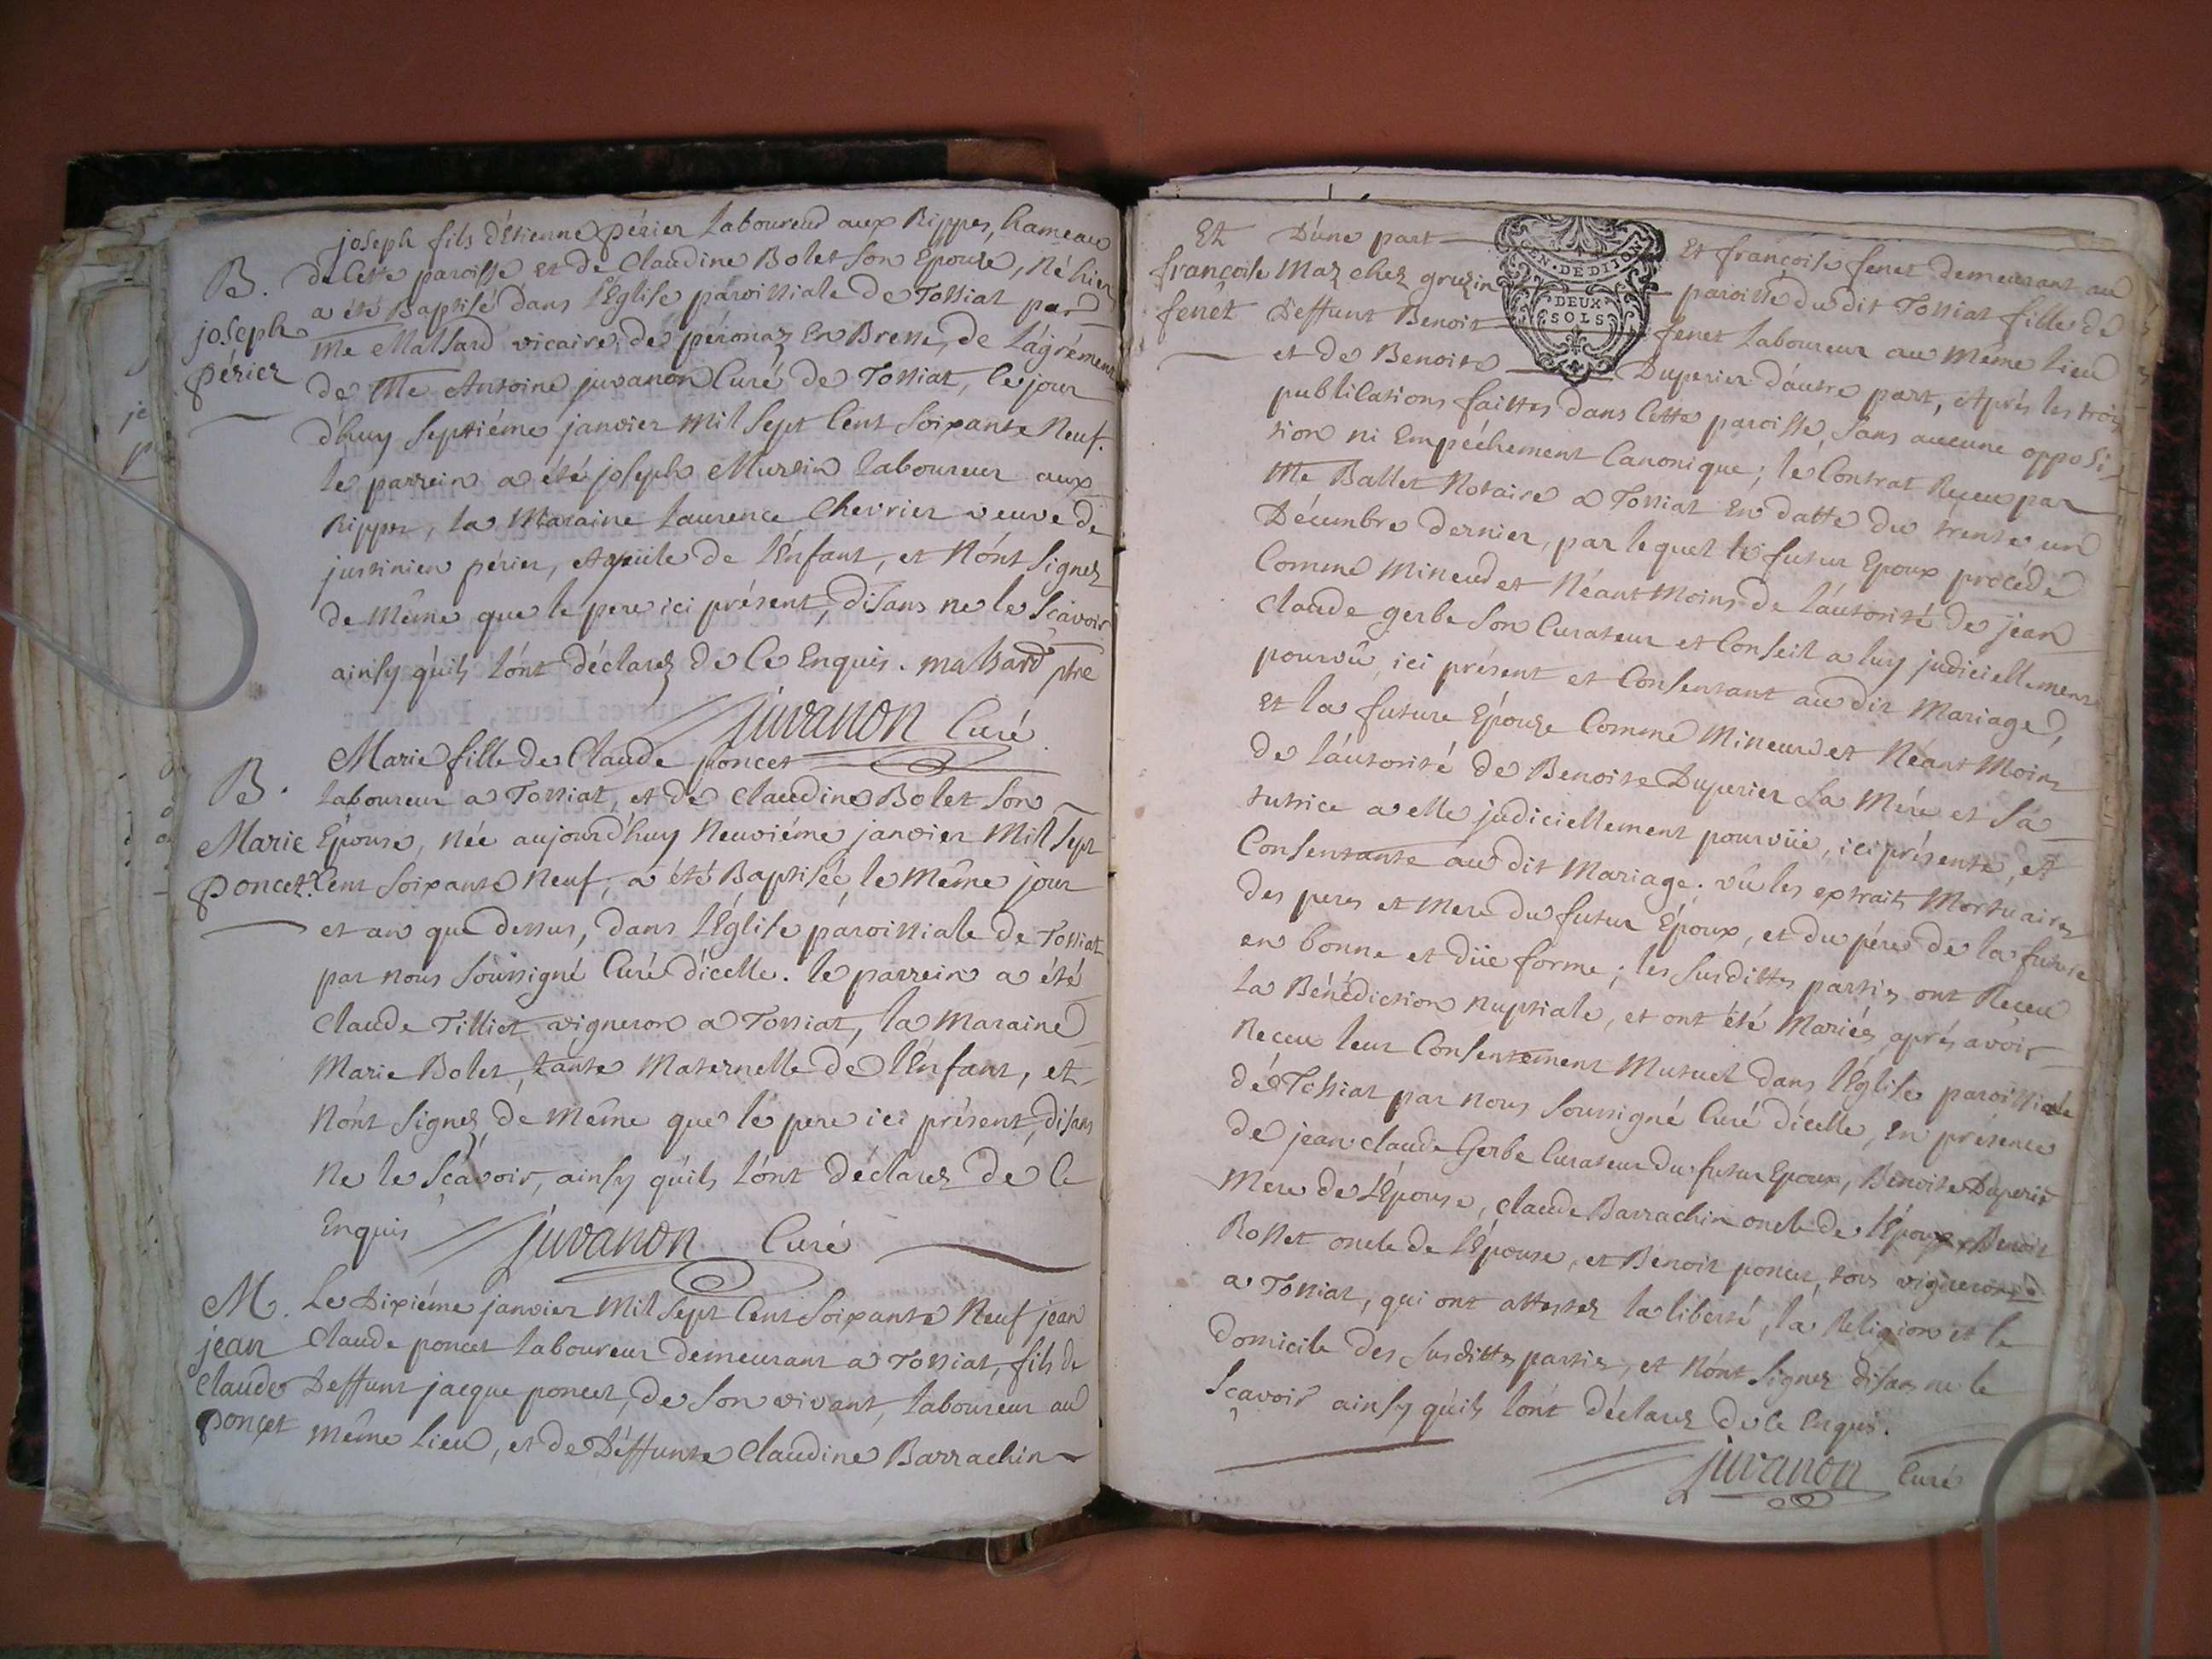 joseph fils d'Etienne périer Laboureur aux Rippes, hameau
B. de Cette paroisse et de Claudine Bolet Son Epouse, Né hier
a été Baptisé dans l'Eglise paroissiale de Tossiat par
joseph
périer
Me Mallard vicaire de péronaz En Bresse, de L'agrément
de Me Antoine juvanon Curé de Tossiat, Ce jour
d'huy Septiéme janvier Mil Sept Cent Soixante Neuf.
le parrein a été joseph Murtin Laboureur aux
Rippes, La Maraine Laurence Chevrier veuve de
justinien périer, Ayeule de l'Enfant, et N'ont Signez
de Même que le pere ici présent, disans ne le Scavoir
ainsy qu'ils L'ont déclarez de Ce Enquis. mallard ptre
juvanon Curé
Marie fille de Claude poncet
B. Laboureur a Tossiat, et de Claudine Bolet Son
Marie
poncet.
Epouse, Née aujourd'huy Neuviéme janvier Mil Sept
Cent Soixante Neuf, a été Baptisée le Même jour
et an que dessus, dans l'Eglise paroissiale de Tossiat
par nous Soussigné Curé d'icelle. le parrein a été
Claude Tilliet vigneron a Tossiat, la Maraine
Marie Bolet, tante Maternelle de l'Enfant, et
N'ont Signez de Même que le pere ici présent, disans
Ne le Sçavoir, ainsy qu'ils L'ont déclarez de Ce
Enquis juvanon Curé
M. Le Dixiéme janvier Mil Sept Cent Soixante Neuf jean
jean
Claude
poncet
Claude poncet Laboureur demeurant a Tossiat, fils de
Deffunt jacque poncet, de Son vivant, Laboureur au
même Lieu, et de Deffunte Claudine Barrachin
Et
françoise
fenet
D'une part Et francoise fenet demeurant au
Maz chez gruzin paroisse du dit Tossiat fille de
Deffunt Benoit fenet Laboureur au Même Lieu
EN. DE DIJON
DEUX
SOLS
et de Benoite Duperier d'autre part, Aprés les trois
publications faittes dans Cette paroisse, Sans aucune opposi
tion ni Empéchement Canonique; le Contrat Receu par
Me Ballet Notaire a Tossiat En datte du trente un
Décembre dernier, par lequel le futur Epoux procédé
Comme Mineur et Néant Moins de l'autorité de jean
claude gerbe Son Curateur et Conseil a luy judiciellement
pourvû, ici présent et Consentant au dit Mariage,
Et la future Epouse Comme Mineure et Néant Moins
de l'autorité de Benoite Duperier Sa Mére et Sa
tutrice a elle judiciellement pourvüe, ici présente, et
Consentante au dit Mariage. vû les extraits Mortuaires
des peres et Mere du futur Epoux, et du pére de la future
en bonne et düe forme; les Susdittes parties ont Receu
La Bénédiction Nuptiale, et ont été Mariées, aprés avoir
Receu leur Consentement Mutuel dans l'Eglise paroissiale
de Tossiat par nous Soussigné Curé d'icelle, En présence
de jean claude Gerbe Curateur du futur Epoux, Benoite Duperie
Mere de l'Epouse, claude Barrachin oncle de l'Epoux, Benoit
Rollet oncle de l'Epouse, et Benoit poncet, tous vignerons
a Tossiat, qui ont attestez la liberté, la Religion et le
domicile des Susdittes parties, et N'ont Signez disans ne le
Sçavoir ainsy qu'ils l'ont déclarez de Ce Enquis.
juvanon Curé